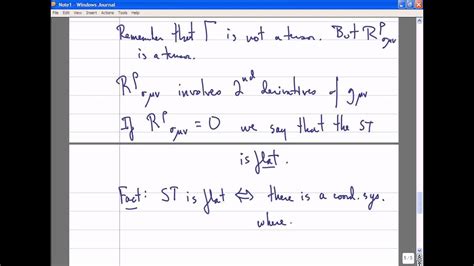 Note1 - Windows Journal
File Edit View Insert Actions Tools Help
Remember that Γ is not a tensor. But R^ρ_σμν
is a tensor.
R^ρ_σμν involves 2^nd derivatives of g_μν
If R^ρ_σμν = 0 we say that the ST
is flat.
Fact: ST is flat ⟺ there is a coord. sys.
where